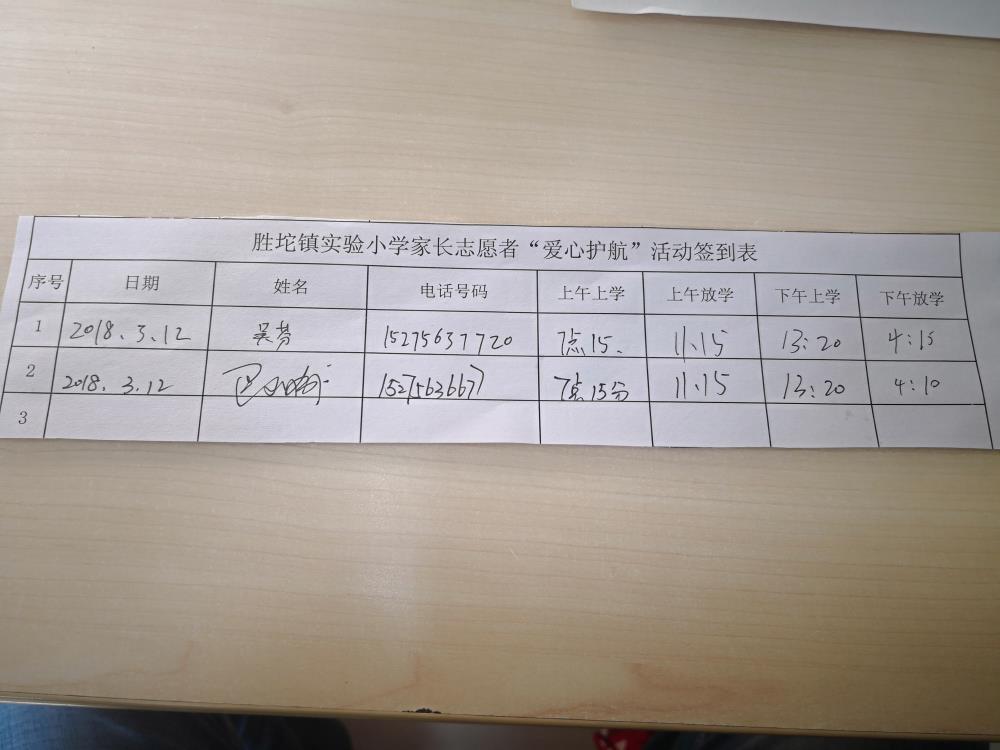 胜坨镇实验小学家长志愿者“爱心护航”活动签到表
序号 日期 姓名 电话号码 上午上学 上午放学 下午上学 下午放学
1 2018.3.12 吴芬 15275637720 7点15. 11.15 13:20 4:15
2 2018.3.12 15275636677 7点15分 11.15 13:20 4:10
3